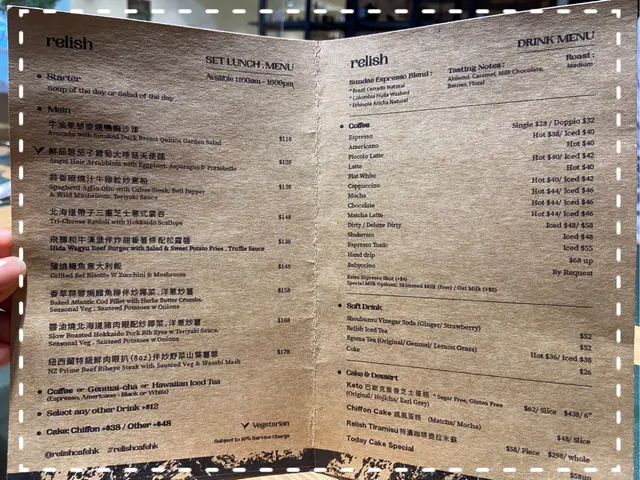 relish
SET LUNCH . MENU
Avalible 1100am - 1600pm
Starter
Soup of the day or Salad of the day
Main
牛油果藜麥煙鴨胸沙律
Avocado with Smoked Duck Breast Quinoa Garden Salad $118
Angel Hair Arrabbiata with Eggplant, Asparagus & Portobello $128
牛柳粒炒意粉
Spaghetti Aglio Olio with Cubee Steak, Bell Pepper
& Wild Mushroom, Teriyaki Sauce $138
北海道帶子三重芝士意式雲吞
Tri-Cheese Ravioli with Hokkaido Scallops $148
飛驒和牛漢堡伴炸甜番薯條配松露醬
Hida Wagyu Beef Burger with Salad & Sweet Potato Fries . Truffle Sauce $138
蒲燒鰻魚意大利飯
Grilled Eel Risotto W Zucchini & Mushroom $148
香草蒜蓉焗鱈魚柳伴炒椰菜,洋蔥炒薯
Baked Atlantic Cod Fillet with Herbs Butter Crumbs,
Seasonal Veg , Sauteed Potatoes w Onions $158
醬油燒北海道豬肉眼配炒椰菜,洋蔥炒薯
Slow Roasted Hokkaido Pork Rib Eyes w Teriyaki Sauce,
Seasonal Veg , Sauteed Potatoes w Onions $168
紐西蘭特級鮮肉眼扒(8oz)伴炒野菜山葵薯蓉
NZ Prime Beef Ribeye Steak with Sautéed Veg & Wasabi Mash $178
Coffee or Genmai-cha or Hawaiian Iced Tea
(Espresso, Americano - Black or White)
Select any other Drink +$12
Cake: Chiffon +$38 / Other +$48
Vegetarian
Subject to 10% Service Charge
@relishcafehk #relishcafehk
relish
DRINK MENU
Sundae Espresso Blend :
* Brazil Cerrado Natural
* Columbia Huila Washed
* Ethiopia Aricha Natural
Tasting Notes :
Almond, Caramel, Milk Chocolate,
Berries, Floral
Roast :
Medium
Coffee
Espresso Single $28 / Doppio $32
Americano Hot $38/ Iced $40
Piccolo Latte Hot $40
Latte Hot $40/ Iced $42
Flat White Hot $40
Cappuccino Hot $40/ Iced $42
Mocha Hot $44/ Iced $46
Chocolate Hot $44/ Iced $46
Matcha Latte Hot $44/ Iced $46
Dirty / Deluxe Dirty Iced $48/ $58
Shakerato Iced $48
Espresso Tonic Iced $55
Hand drip $68 up
Babyccino By Request
Extra Espresso Shot (+$8)
Special Milk Options: Skimmed Milk (free) / Oat Milk (+$8)
Soft Drink
Shoubunsu Vinegar Soda (Ginger/ Strawberry) $52
Relish Iced Tea $52
Egoma Tea (Original/ Genmai/ Lemon Grass) Hot $36/ Iced $38
Coke $26
Cake & Dessert
Keto 巴斯克焦香芝士蛋糕 * Sugar Free, Gluten Free
(Original/ Hojicha/ Earl Grey) $62/ Slice $438/ 6"
Chiffon Cake 戚風蛋糕 (Matcha/ Mocha) $48/ Slice
Relish Tiramisu 特濃咖啡提拉米蘇 $58/ Piece $298/ whole
Today Cake Special $58up